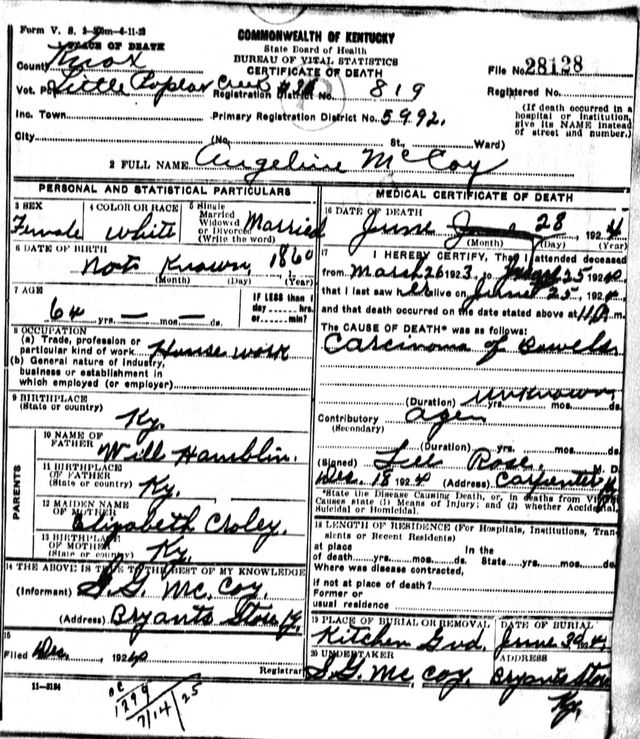 Form V. S. 4-11-23
COMMONWEALTH OF KENTUCKY
State Board of Health
BUREAU OF VITAL STATISTICS
CERTIFICATE OF DEATH
PLACE OF DEATH
County Knox
File No. 28128
Vot. Little Poplar Creek # 26
Registration District No. 819
Registered No.
(If death occurred in a hospital or institution, give its NAME instead of street and number.)
Inc. Town
Primary Registration District No. 5992.
City
(No. St., Ward)
2 FULL NAME Angeline McCoy
PERSONAL AND STATISTICAL PARTICULARS
3 SEX
Female
4 COLOR OR RACE
White
5 Single
Married
Widowed
or Divorced
(Write the word)
Married
6 DATE OF BIRTH
Not Known, 1860
(Month) (Day) (Year)
7 AGE
64 yrs. — mos. — ds.
IF LESS than 1
day hrs.
or min.?
8 OCCUPATION
(a) Trade, profession or
particular kind of work House work
(b) General nature of Industry,
business or establishment in
which employed (or employer)
9 BIRTHPLACE
(State or country)
Ky.
PARENTS
10 NAME OF
FATHER
Will Hamblin.
11 BIRTHPLACE
OF FATHER
(State or country)
Ky.
12 MAIDEN NAME
OF MOTHER
Elizabeth Croley.
13 BIRTHPLACE
OF MOTHER
(State or country)
Ky.
14 THE ABOVE IS TRUE TO THE BEST OF MY KNOWLEDGE
(Informant) S. G. McCoy.
(Address) Bryants Store Ky.
15
Filed Dec. , 1924
Registrar
11-3184
MEDICAL CERTIFICATE OF DEATH
16 DATE OF DEATH
June 28 1924
(Month) (Day) (Year)
17 I HEREBY CERTIFY, That I attended deceased
from March 26 1923, to 25 1924
that I last saw alive on June 25, 1924,
and that death occurred on the date stated above at m.
The CAUSE OF DEATH* was as follows:
Carcinoma of Bowels
Unknown
(Duration) yrs. mos. ds.
Contributory
(Secondary)
(Duration) yrs. mos. ds.
(Signed) Rose. M. D.
Dec. 18 1924 (Address) Carpenter Ky
*State the Disease Causing Death, or, in deaths from
Causes state (1) Means of Injury; and (2) whether Accidental,
Suicidal or Homicidal.
18 LENGTH OF RESIDENCE (For Hospitals, Institutions, Transients or Recent Residents)
at place In the
of death yrs. mos. ds. State yrs. mos. ds.
Where was disease contracted,
if not at place of death?
Former or
usual residence
19 PLACE OF BURIAL OR REMOVAL
Kitchen Gvd.
DATE OF BURIAL
June 30
20 UNDERTAKER
S. G. McCoy.
ADDRESS
Bryants Store
Ky.
1299
7/14/25